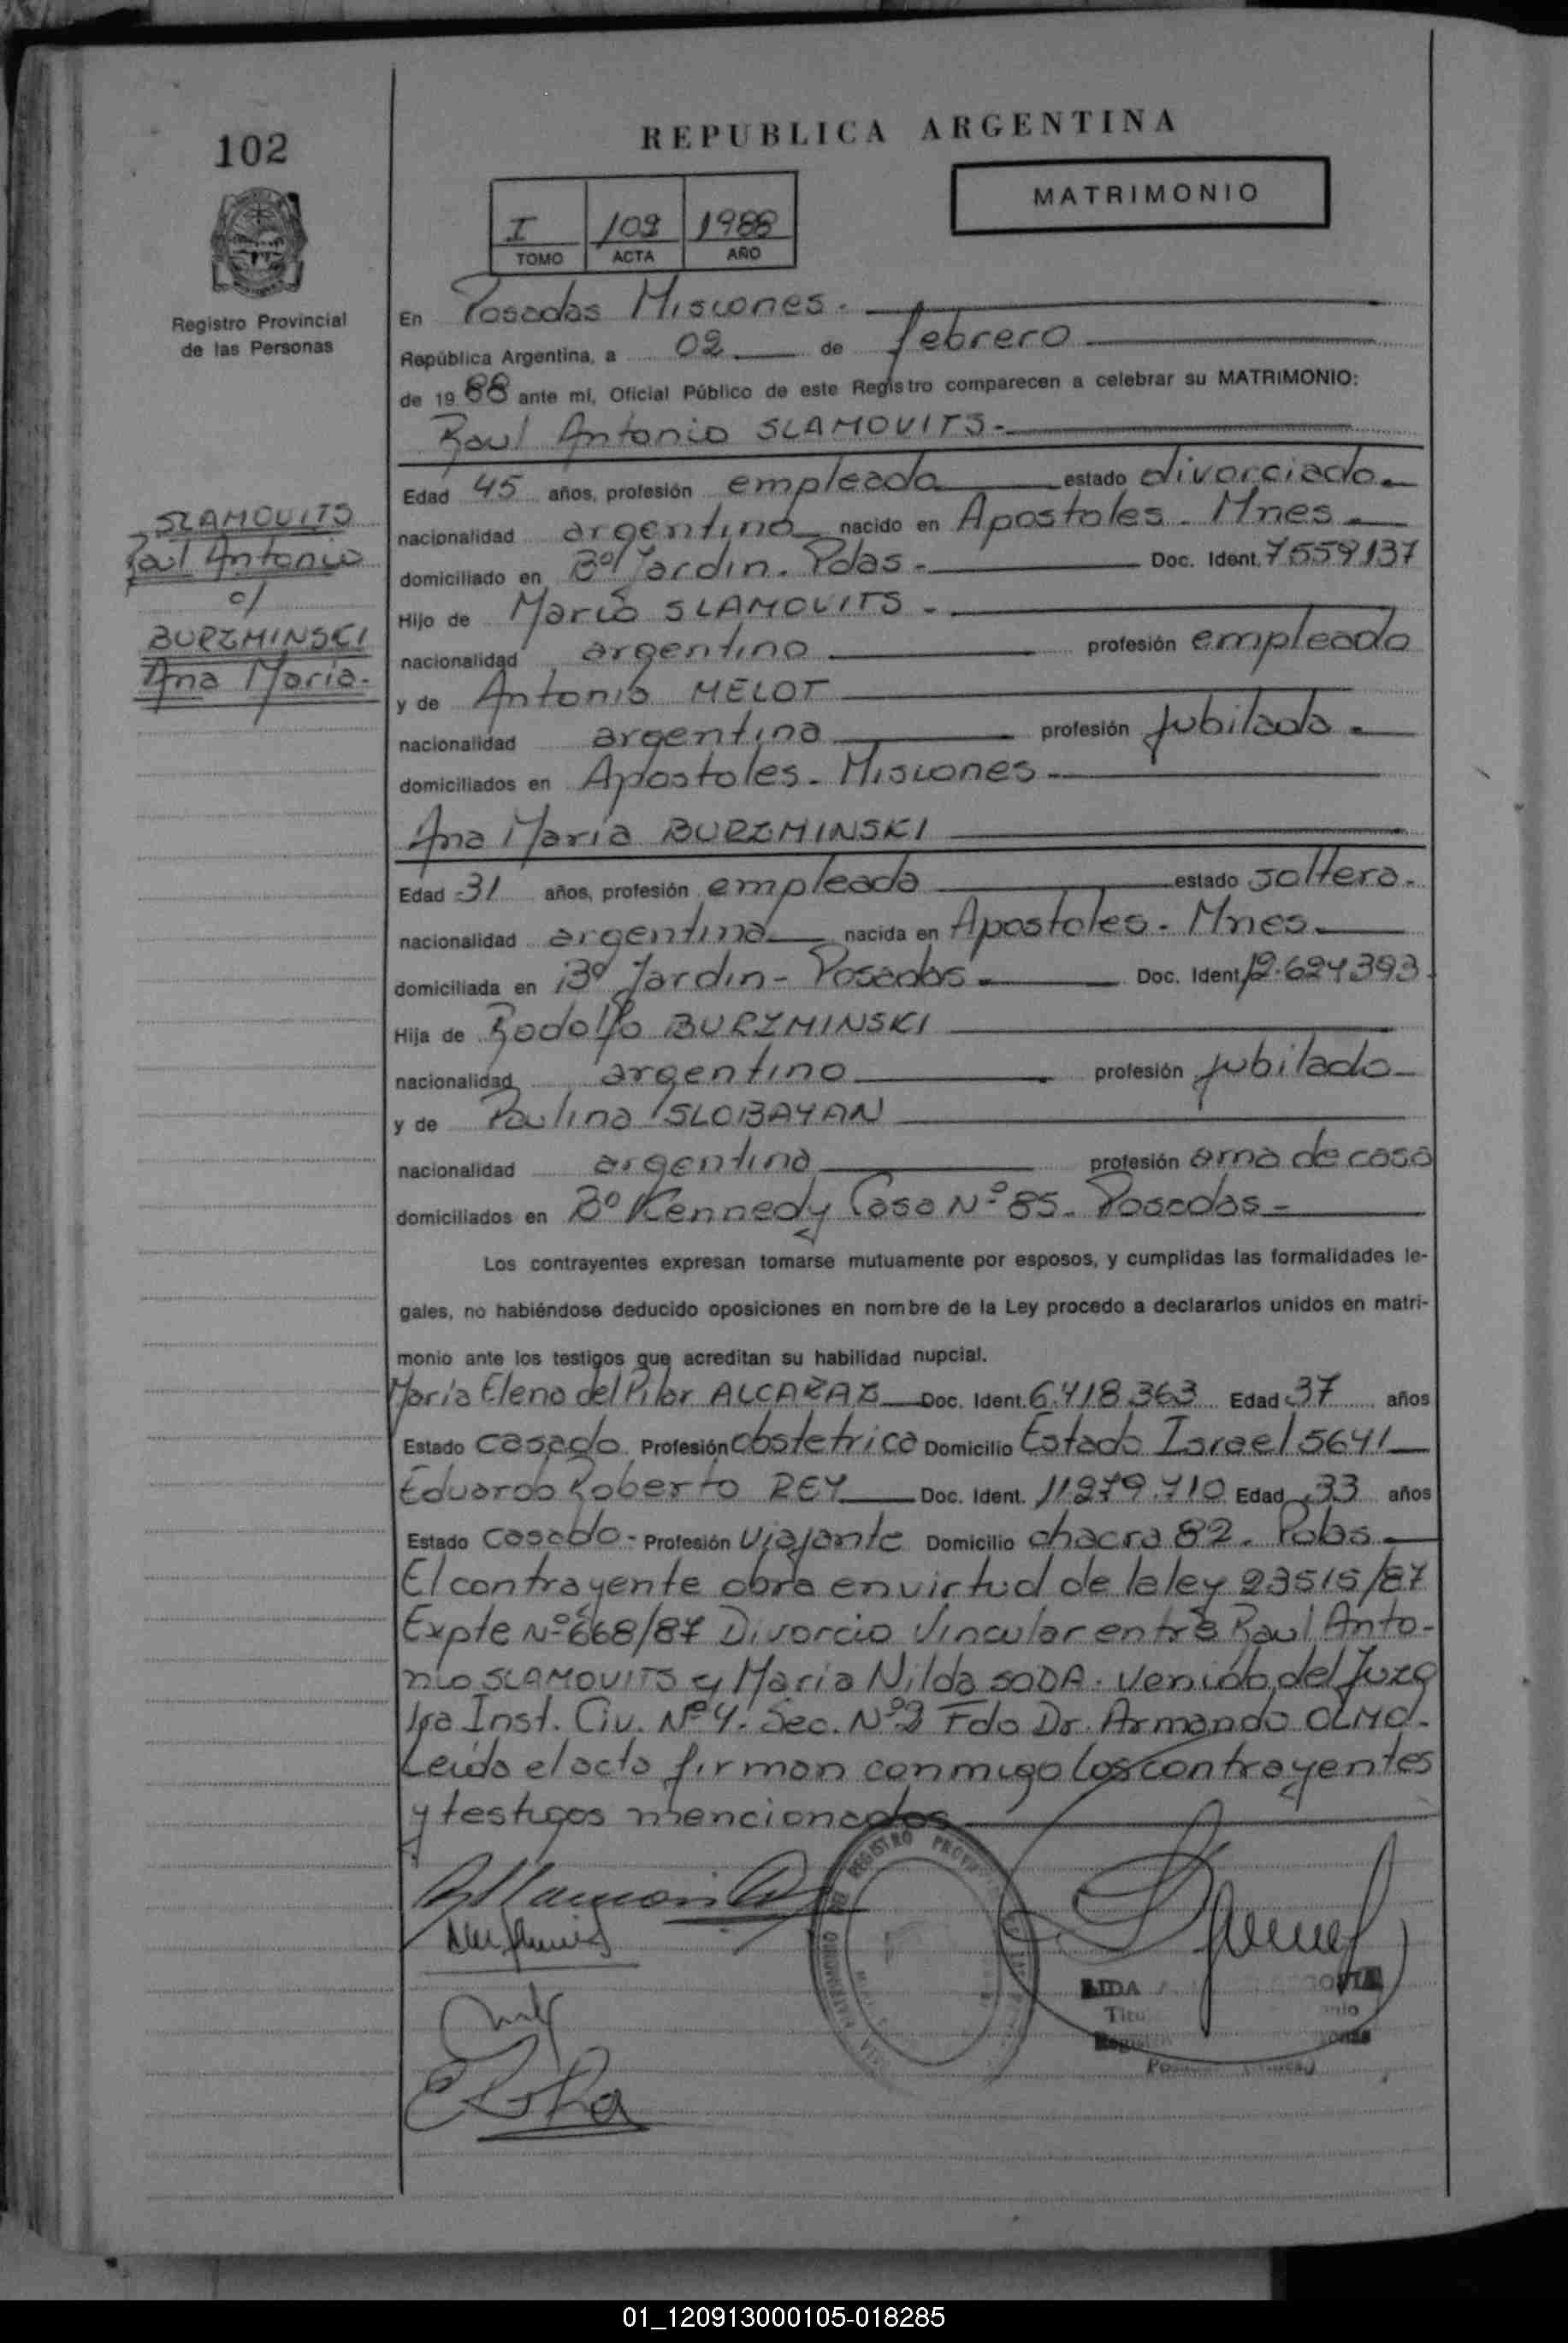 102
REPUBLICA ARGENTINA
MATRIMONIO
I 102 1988
TOMO ACTA AÑO
Registro Provincial
de las Personas
En Posadas Misiones.
República Argentina, a 02 de febrero
de 19 88 ante mí, Oficial Público de este Registro comparecen a celebrar su MATRIMONIO:
Raul Antonio SLAMOVITS.
Edad 45 años, profesión empleado estado divorciado.
nacionalidad argentina nacido en Apostoles. Mnes.
domiciliado en Bº Jardin. Pdas. Doc. Ident. 7559137
Hijo de Mario SLAMOVITS.
nacionalidad argentino profesión empleado
y de Antonia MELOT
nacionalidad argentina profesión jubilada.
domiciliados en Apostoles. Misiones.
SLAMOVITS
Raul Antonio
c/
BURZMINSKI
Ana Maria.
Ana Maria BURZMINSKI
Edad 31 años, profesión empleada estado soltera.
nacionalidad argentina nacida en Apostoles. Mnes.
domiciliada en Bº Jardin - Posadas. Doc. Ident. 12.624393.
Hija de Rodolfo BURZMINSKI
nacionalidad argentino profesión jubilado
y de Paulina SLOBAYAN
nacionalidad argentina profesión ama de casa
domiciliados en Bº Kennedy Casa Nº 85. Posadas
Los contrayentes expresan tomarse mutuamente por esposos, y cumplidas las formalidades le-
gales, no habiéndose deducido oposiciones en nombre de la Ley procedo a declararlos unidos en matri-
monio ante los testigos que acreditan su habilidad nupcial.
Maria Elena del Pilar ALCARAZ Doc. Ident. 6.418.363 Edad 37 años
Estado casada Profesión obstetrica Domicilio Estado Israel 5641
Eduardo Roberto REY Doc. Ident. 11.279.710 Edad 33 años
Estado casado - Profesión viajante Domicilio chacra 82. Pdas.
El contrayente obra en virtud de la ley 23515/87
Expte Nº 668/87 Divorcio Vincular entre Raul Anto-
nio SLAMOVITS y Maria Nilda SODA. Venido del Juzg
1ra Inst. Civ. Nº 4. Sec. Nº 2 Fdo Dr. Armando OLMO.
Leida el acta firman conmigo los contrayentes
y testigos mencionados
REGISTRO
LIDA
01_120913000105-018285